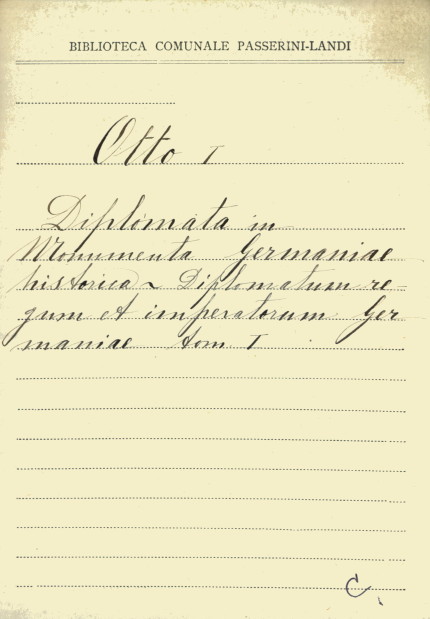 BIBLIOTECA COMUNALE PASSERINI-LANDI
Otto I
Diplomata in
Monumenta Germaniae
historica ~ Diplomatum re-
gum et imperatorum Ger
maniae tom I
C